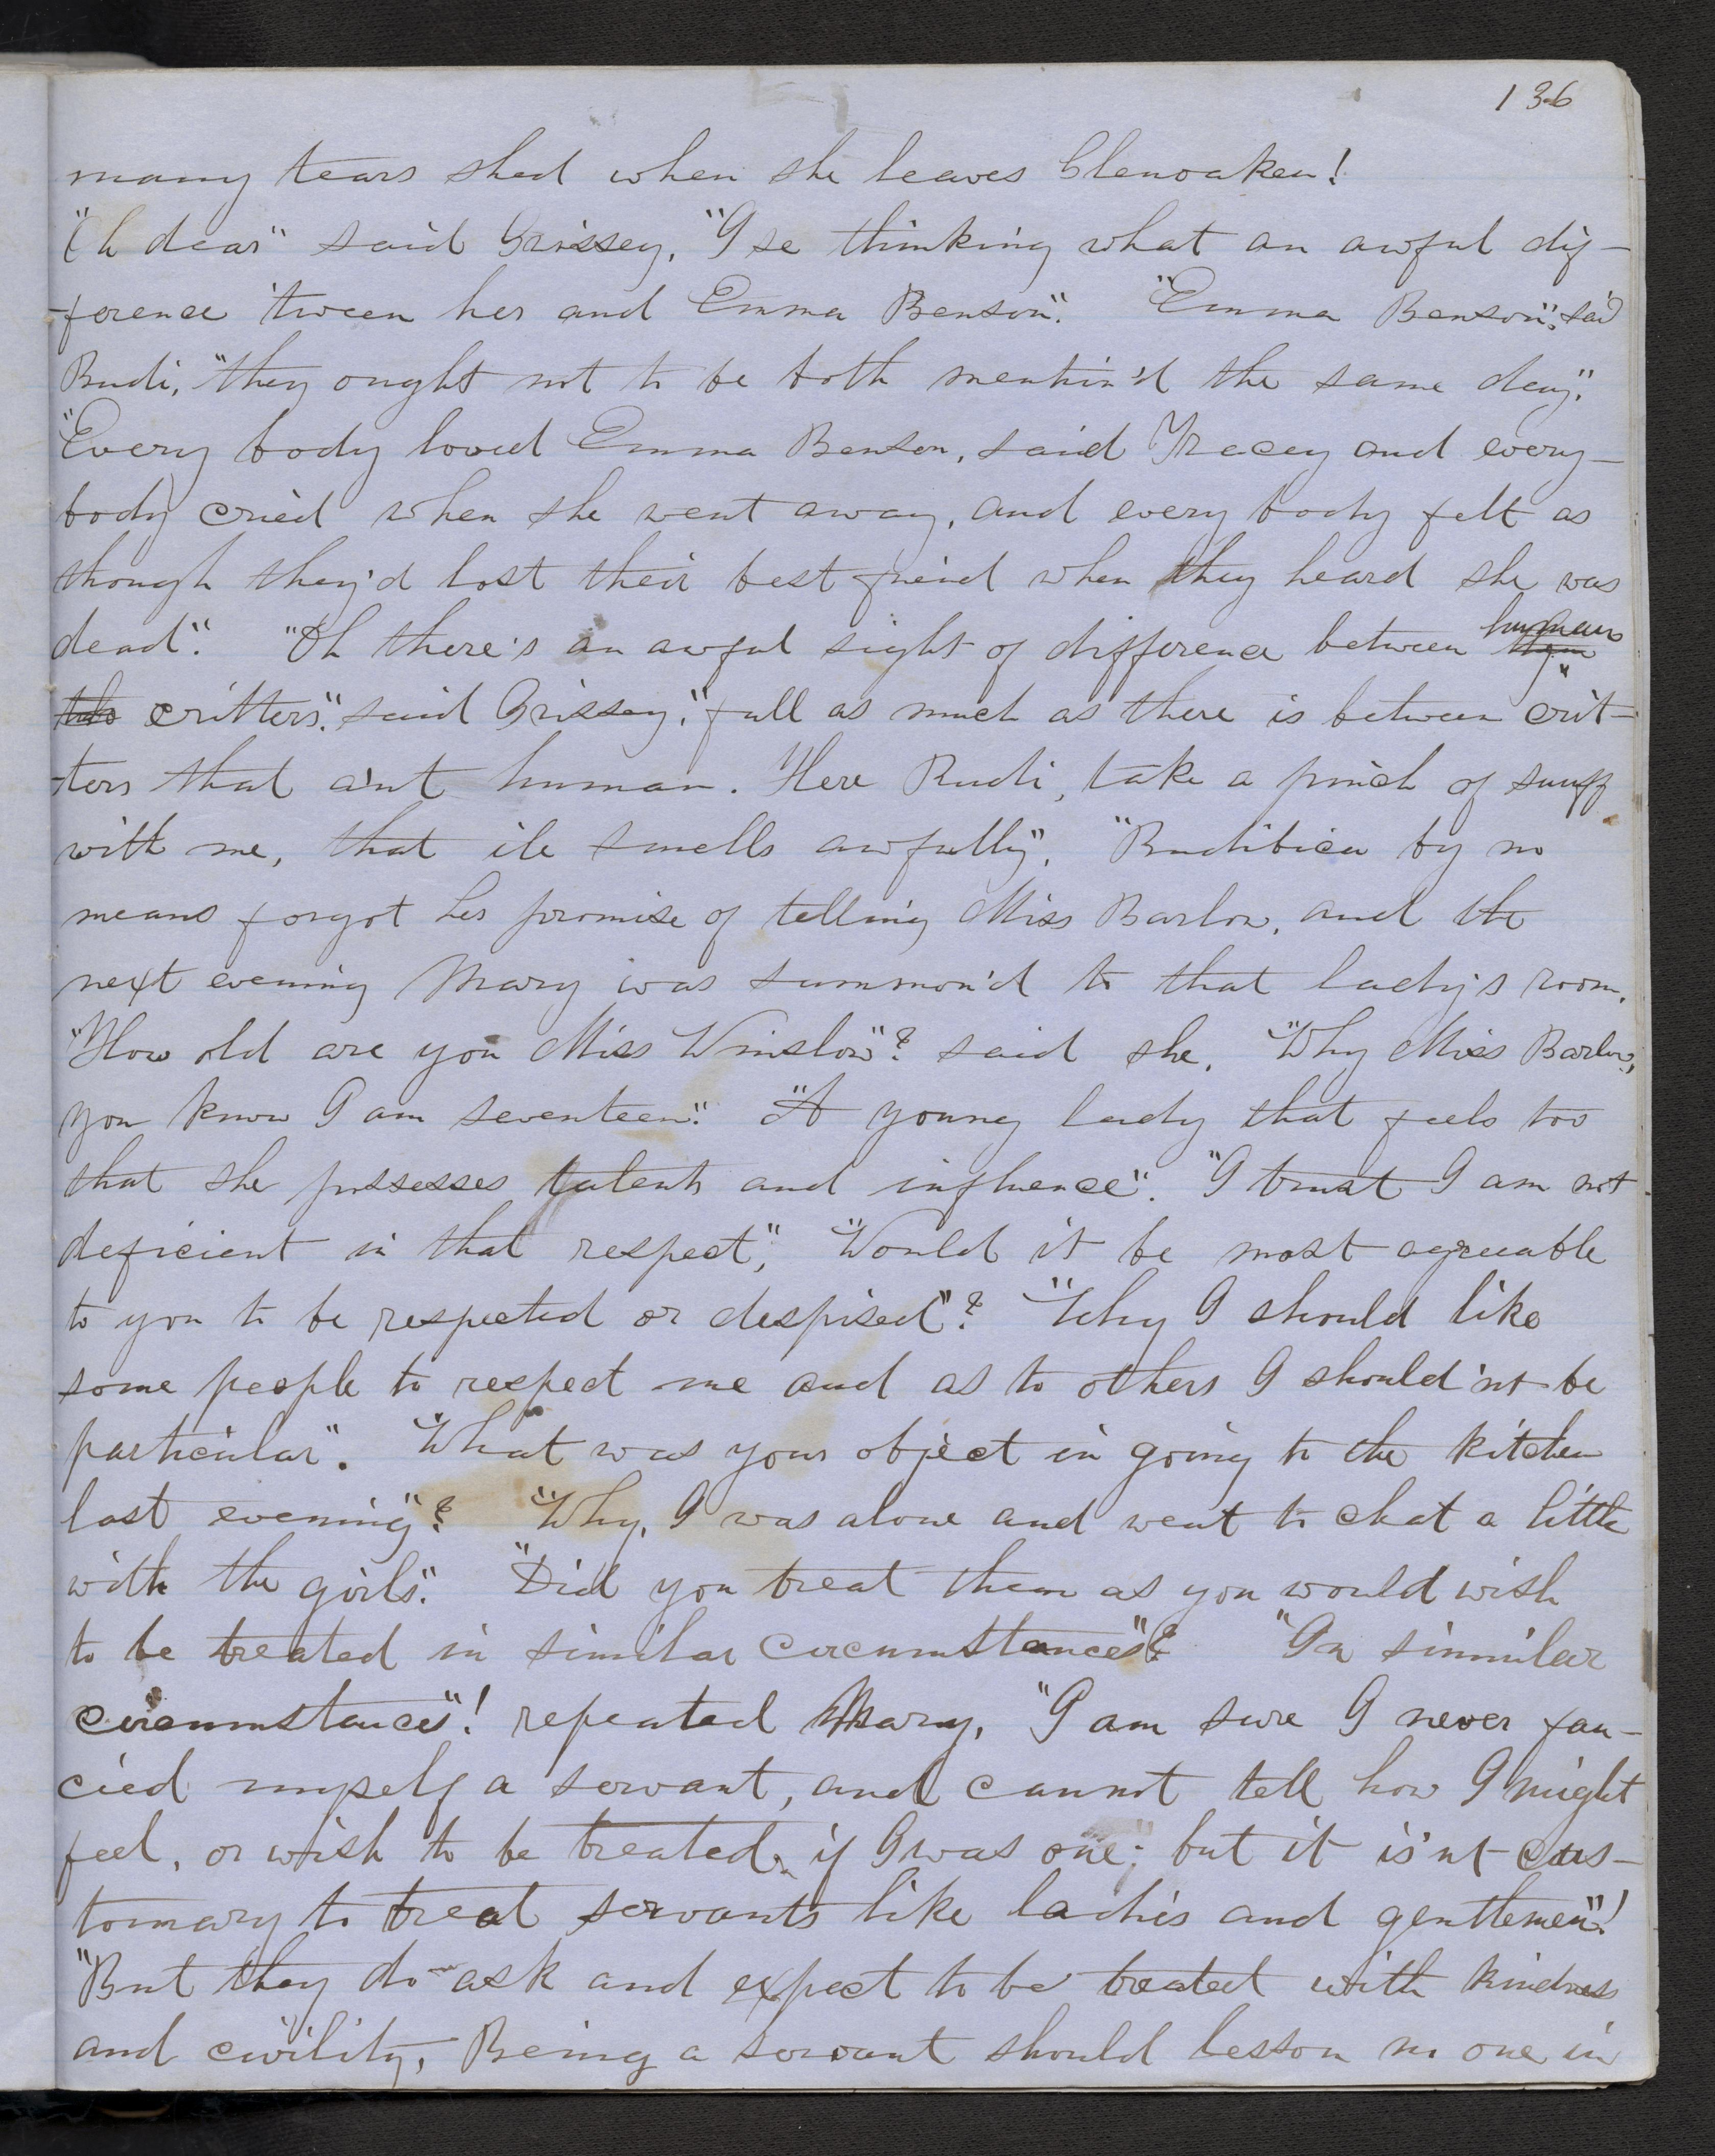 136
many tears shed when she leaves Glenoaken!
"Oh dear" said Grissey, "I se thinking what an awful dif-
-ference 'tween her and Emma Benson". "Emma Benson", sa'd
Rudi, "they ought not to be both mention'd the same day".
"Every body loved Emma Benson, said Tracey and every-
body cried when she went away, and every body felt as
though they'd lost their best friend when they heard she was
dead". "Oh there's an awful sight of difference between them human
two critters", said Grissey, "full as much as there is between crit-
-ters that a'nt human. Here Rudi, take a pinch of snuff
with me, that ile smells awfully". "Rudibica by no
means forgot her promise of telling Miss Barlow, and the
next evening Mary was summon'd to that lady's room.
"How old are you Miss Winslow"? said she. "Why Miss Barlow,
you know I am seventeen". "A young lady that feels too
that she possesses talents and influence". "I trust I am not
deficient in that respect", "Would it be most agreeable
to you to be respected or despised"? "Why I should like
some people to respect me and as to others I should'nt be
particular". "What was your object in going to the kitchen
last evening"? "Why, I was alone and went to chat a little
with the girls". "Did you treat them as you would wish
to be treated in similar circumstances"? "In simmilar
circumstances"! repeated Mary, "I am sure I never fan-
cied myself a servant, and cannot tell how I might
feel, or wish to be treated, if I was one; but it is'nt cus-
tomary to treat servants like ladies and gentlemen"!
"But they do ask and expect to be treated with kindness
and civility, Being a servant should lesson no one in